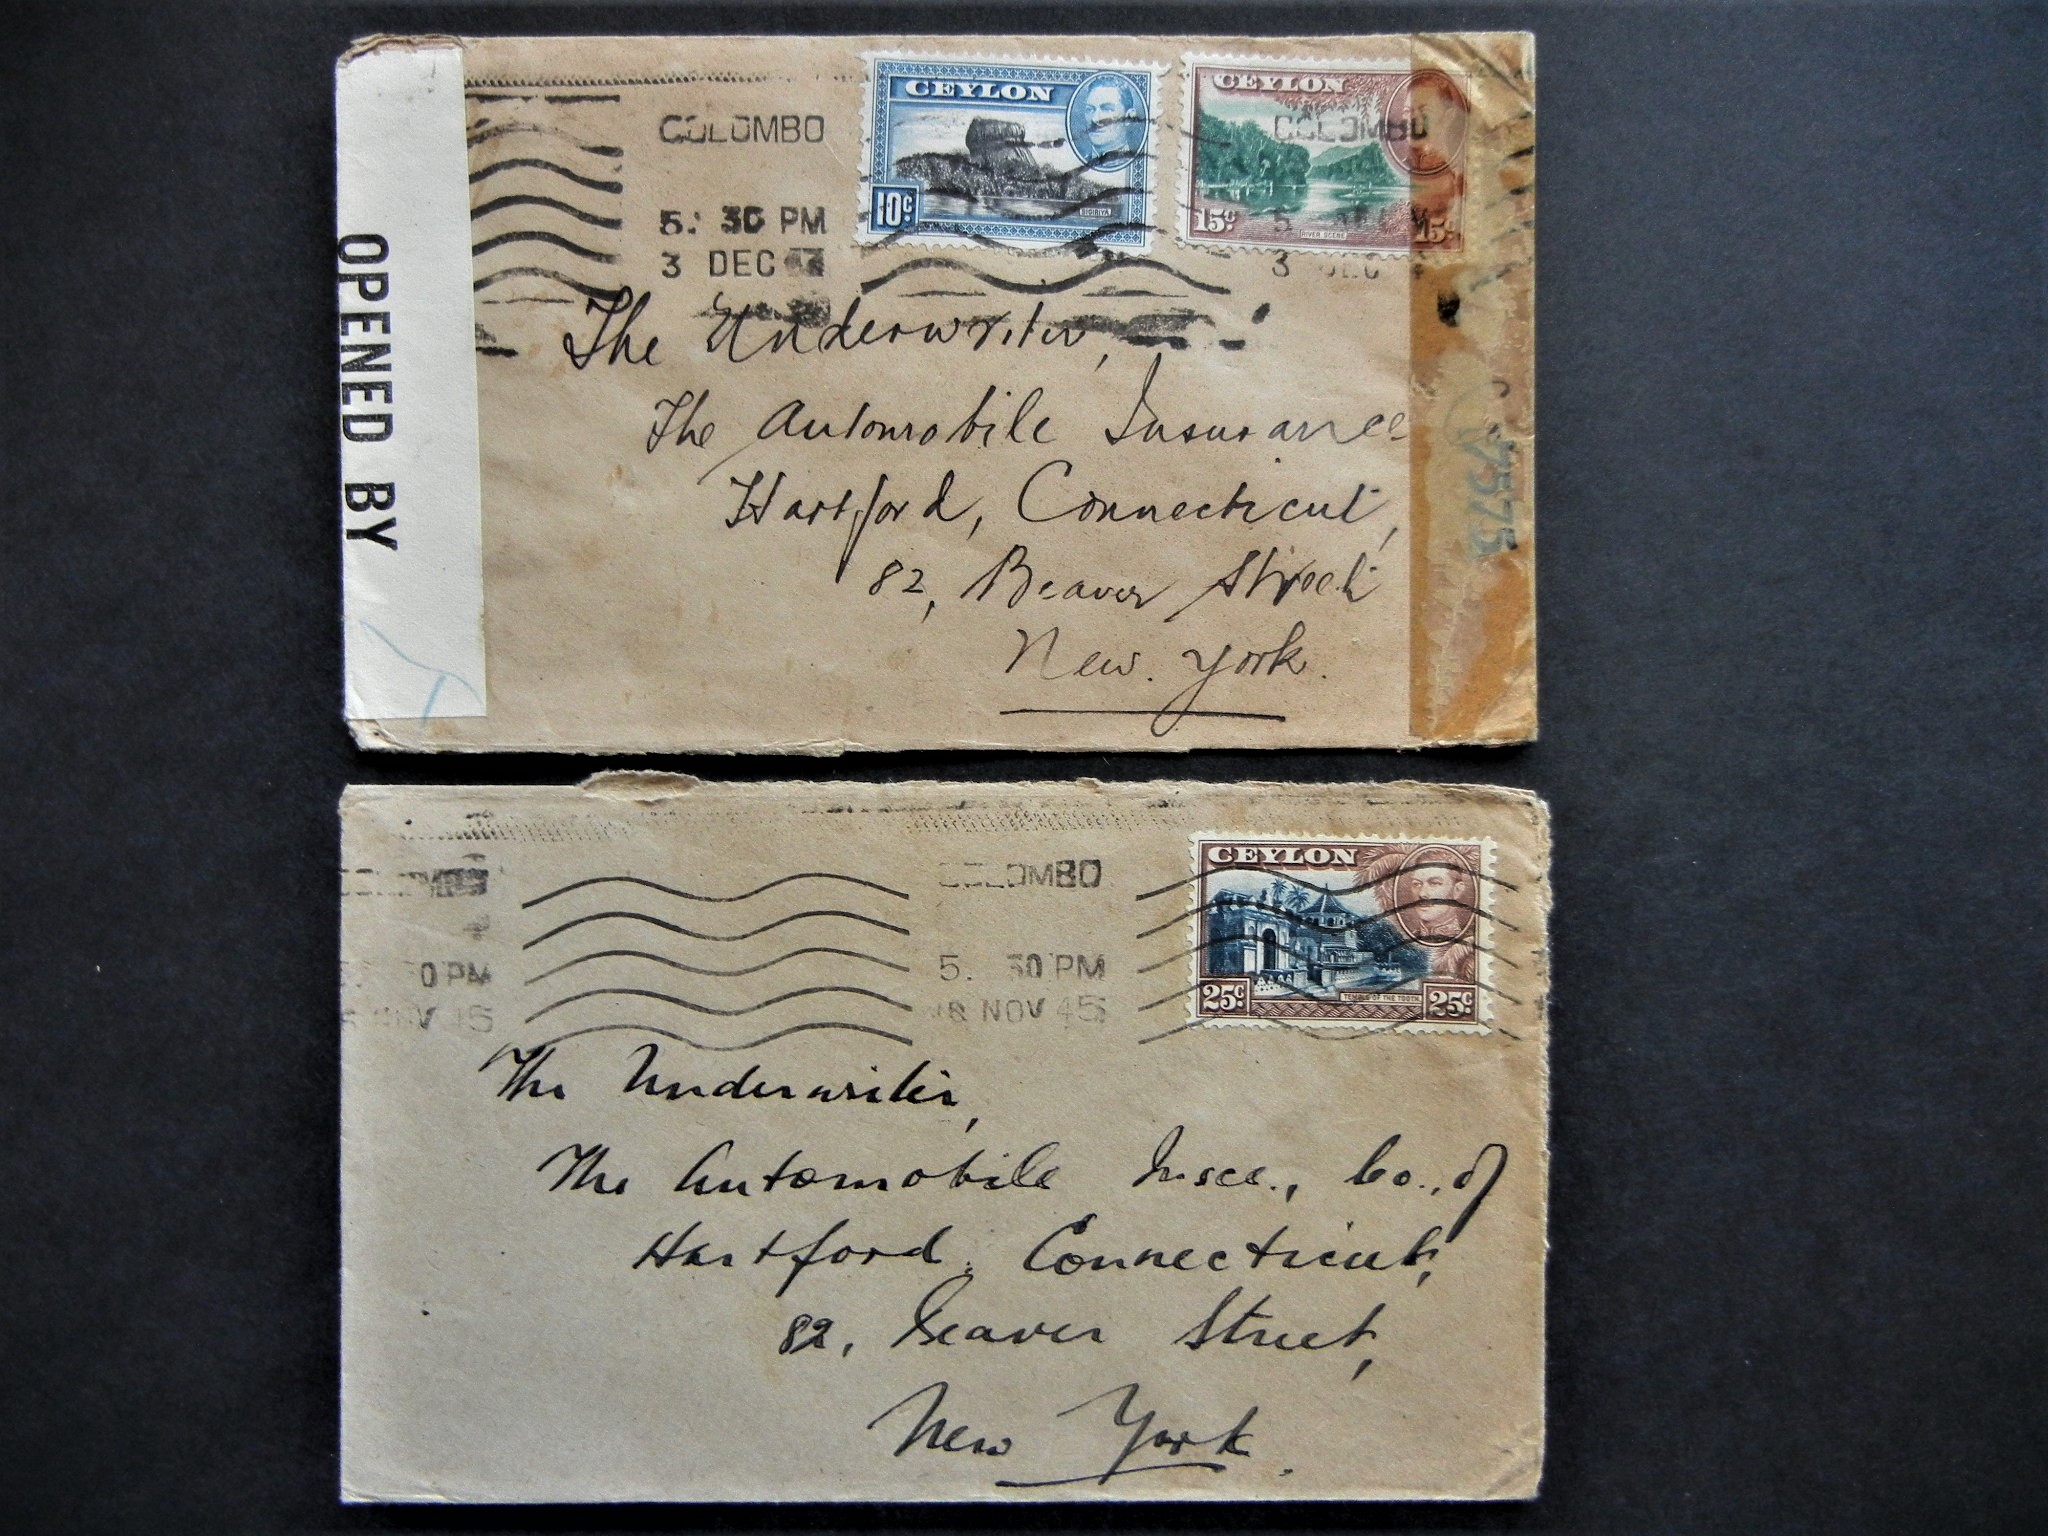 OPENED BY
COLOMBO
5. 30 PM
3 DEC
CEYLON
10c.
SIGIRIYA
CEYLON
COLOMBO
15c
RIVER SCENE
15c
5
3 DEC
The Underwriter,
The Automobile Insurance
Hartford, Connecticut,
82, Beaver Street
New York.
7575
COLOMBO
0 PM
NOV 45
COLOMBO
5. 30 PM
NOV 45
CEYLON
25c.
TEMPLE OF THE TOOTH
25c.
The Underwriter,
The Automobile Insce., Co., of
Hartford, Connecticut,
82, Beaver Street,
New York.